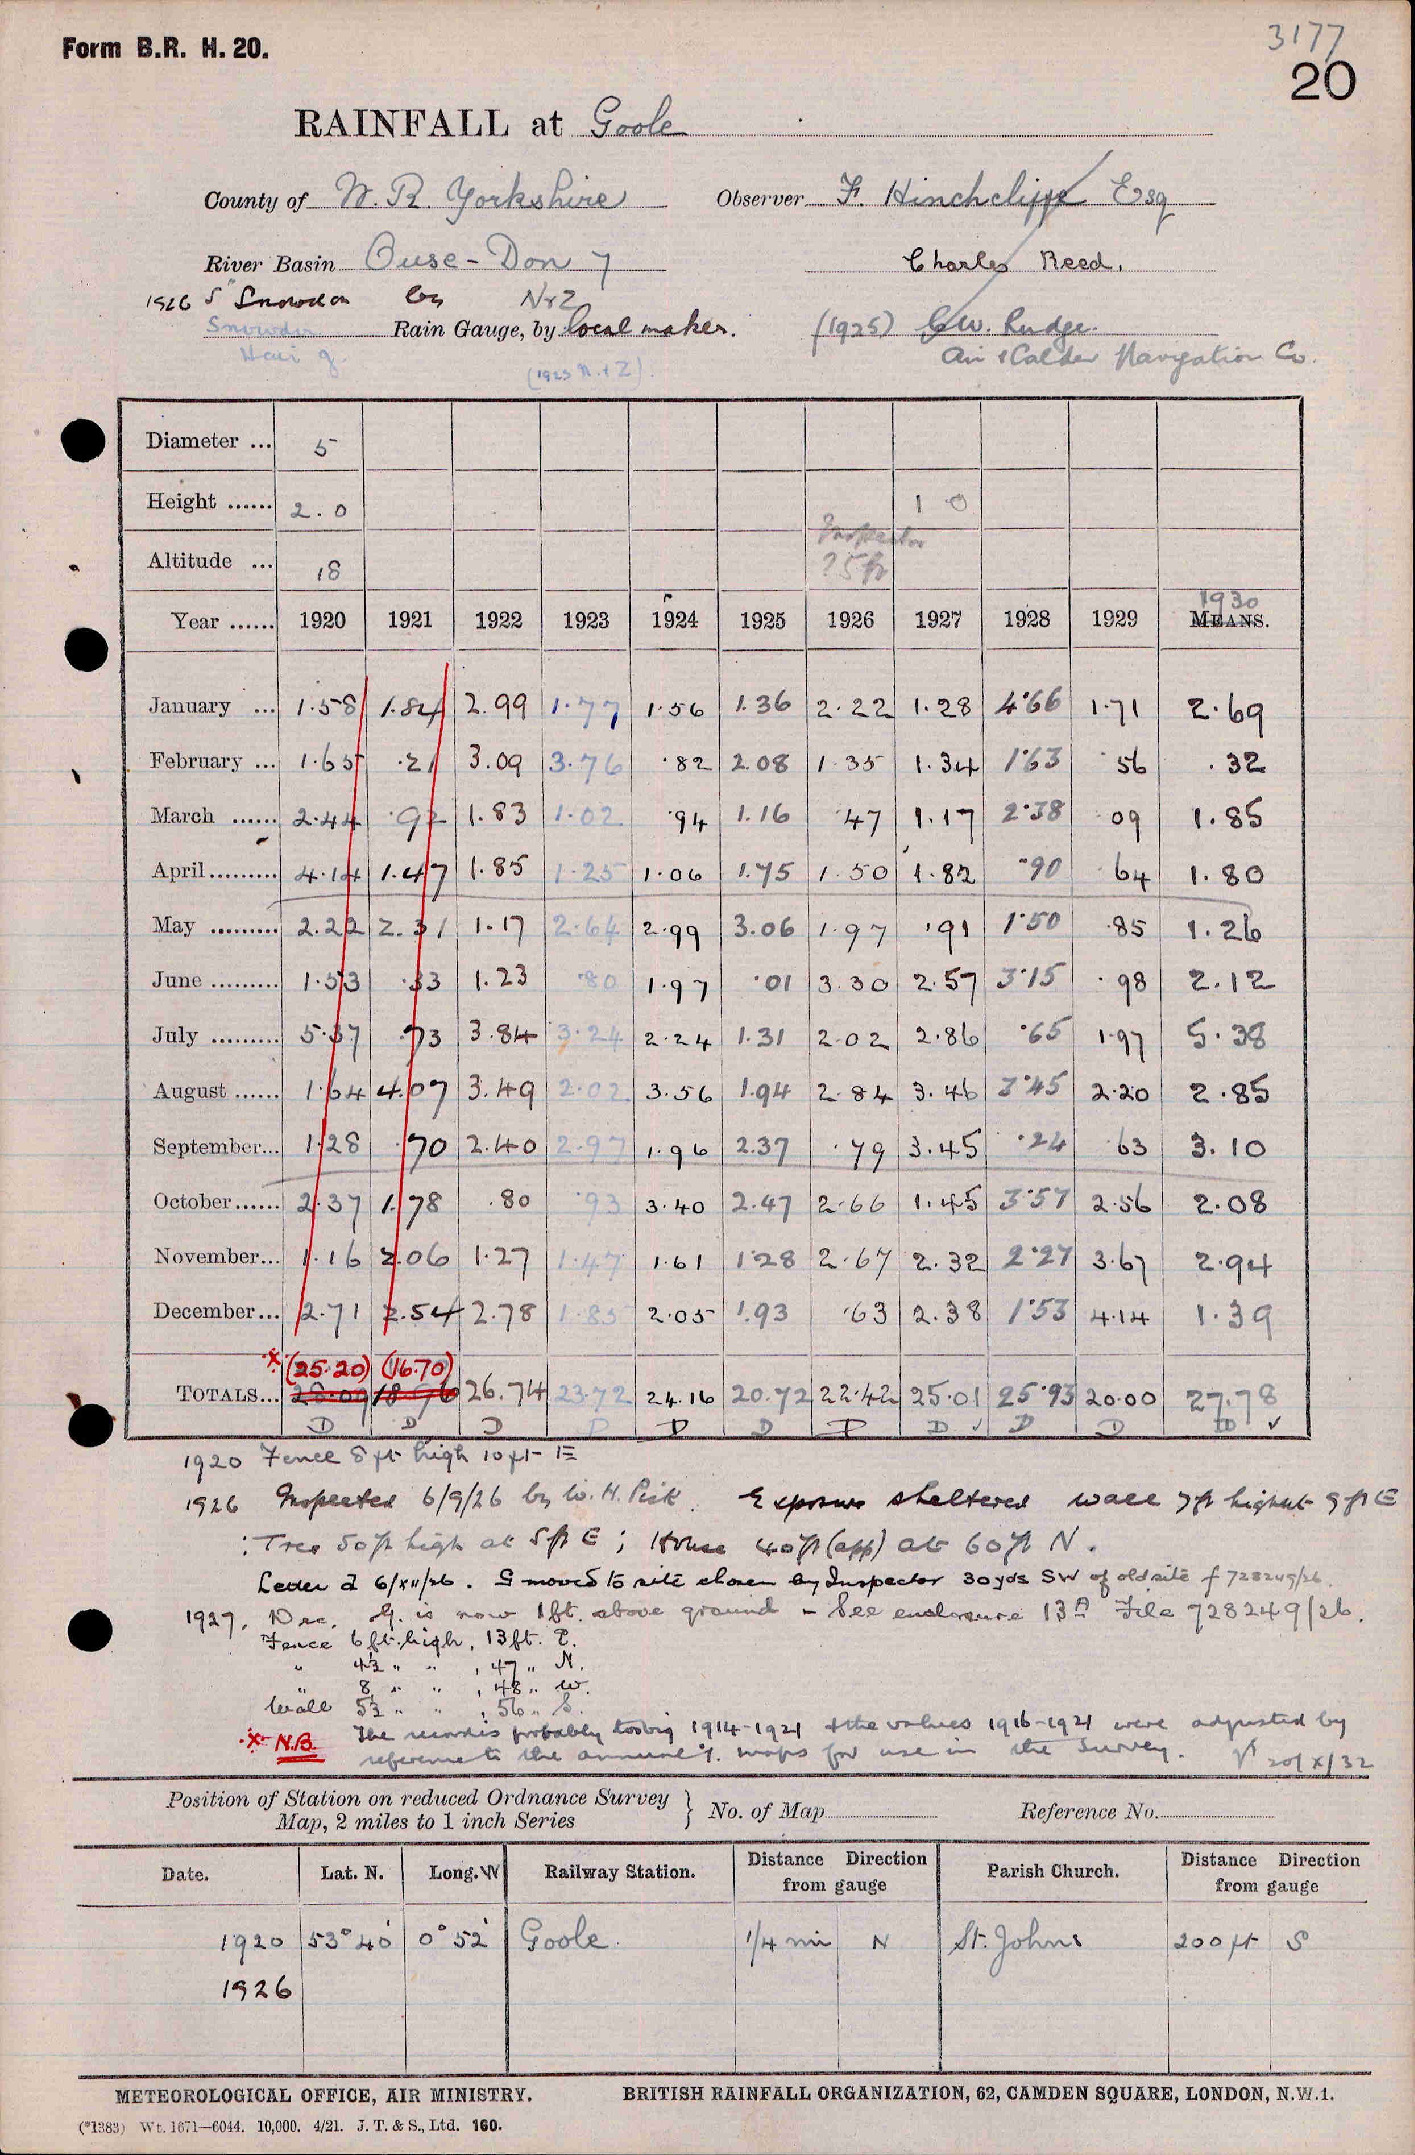 Form B.R. H. 20.
3177
20
RAINFALL at Goole
County of W. R. Yorkshire Observer F. Hinchcliffe Esq
River Basin Ouse-Don 7 Charles Reed.
1926 5" Snowdon by N&Z
Snowdon Rain Gauge, by local maker. (1925) C.W. Rudge.
Air & Calder Navigation Co.
(1923 N.+Z).
Diameter ... 5
Height ...... 2.0 1 0
Inspector
Altitude ... 18 ?5ft
1930
Year ...... 1920 1921 1922 1923 1924 1925 1926 1927 1928 1929 MEANS.
January ... 1.58 1.84 2.99 1.77 1.56 1.36 2.22 1.28 4.66 1.71 2.69
February ... 1.65 .21 3.09 3.76 .82 2.08 1.35 1.34 1.63 .56 .32
March ...... 2.44 .92 1.83 1.02 .94 1.16 .47 1.17 2.38 09 1.85
April......... 4.14 1.47 1.85 1.25 1.06 1.75 1.50 1.82 .90 64 1.80
May ......... 2.22 2.31 1.17 2.64 2.99 3.06 1.97 .91 1.50 .85 1.26
June ......... 1.53 .33 1.23 .80 1.97 .01 3.30 2.57 3.15 .98 2.12
July ......... 5.37 .73 3.84 3.24 2.24 1.31 2.02 2.86 .65 1.97 5.38
August ...... 1.64 4.07 3.49 2.02 3.56 1.94 2.84 3.46 3.45 2.20 2.85
September... 1.28 .70 2.40 2.97 1.96 2.37 .79 3.45 .24 63 3.10
October...... 2.37 1.78 .80 .93 3.40 2.47 2.66 1.45 3.57 2.56 2.08
November... 1.16 2.06 1.27 1.47 1.61 1.28 2.67 2.32 2.27 3.67 2.94
December... 2.71 2.54 2.78 1.85 2.05 1.93 .63 2.38 1.53 4.14 1.39
* (25.20) (16.70)
TOTALS... 28.09 18.96 26.74 23.72 24.16 20.72 22.42 25.01 25.93 20.00 27.78
D D D D D D D D ✓ D D D ✓
1920 Fence 8 ft high 10 ft E
1926 Inspected 6/9/26 by W. H. Pick. Exposure sheltered wall 7ft high at 9 ft E
: Tree 50 ft high at 5 ft E ; House 40 ft (app) at 60 ft N.
Letter d 6/XII/26. G moved to site chosen by Inspector 30 yds SW of old site f 728249/26.
1927. Dec. G. is now 1 ft. above ground - See enclosure 13A File 728249/26.
Fence 6 ft. high, 13 ft. E.
" 4½ " " , 47 " N.
" 8 " " , 48 " W.
Wall 5½ " " , 56 " S.
* N.B. The record is probably too big 1914-1921 & the values 1916-1921 were adjusted by
reference to the annual % maps for use in the Survey. 20/X/32
Position of Station on reduced Ordnance Survey Map, 2 miles to 1 inch Series } No. of Map Reference No.
Date. Lat. N. Long. W Railway Station. Distance Direction from gauge Parish Church. Distance Direction from gauge
1920 53° 40' 0° 52' Goole. 1/4 mi N St. Johns 200 ft S
1926
METEOROLOGICAL OFFICE, AIR MINISTRY. BRITISH RAINFALL ORGANIZATION, 62, CAMDEN SQUARE, LONDON, N.W.1.
(*1383) Wt. 1671—6044. 10,000. 4/21. J. T. & S., Ltd. 160.